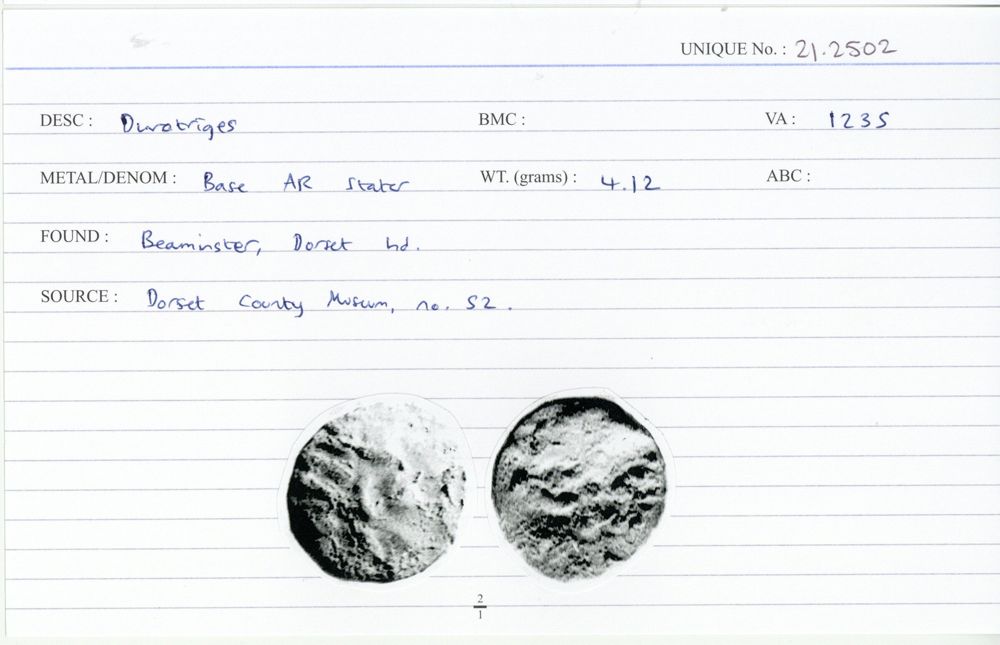 UNIQUE No. : 21.2502
DESC : Durotriges BMC : VA : 1235
METAL/DENOM : Base AR Stater WT. (grams) : 4.12 ABC :
FOUND : Beaminster, Dorset hd.
SOURCE : Dorset County Museum, no. 52.
2
1